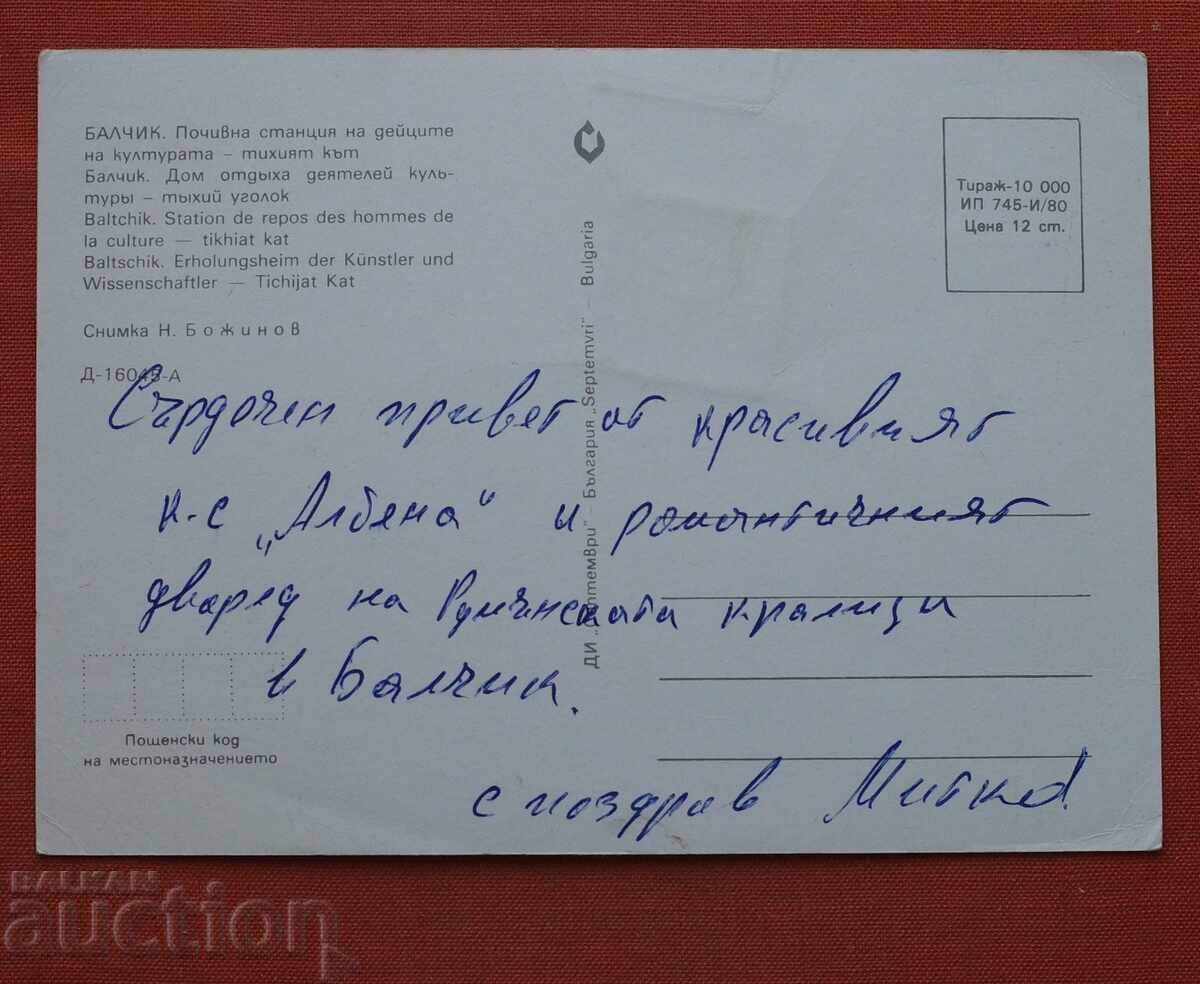 БАЛЧИК. Почивна станция на дейците
на културата – тихият кът
Балчик. Дом отдыха деятелей куль-
туры – тыхий уголок
Baltchik. Station de repos des hommes de
la culture — tikhiat kat
Baltschik. Erholungsheim der Künstler und
Wissenschaftler — Tichijat Kat
Снимка Н. Божинов
Д-16045-А
Тираж-10 000
ИП 745-И/80
Цена 12 ст.
ДИ „Септември" – България „Septemvri" – Bulgaria
Сърдочен привет от красивият
к-с „Албена" и романтичният
дворец на Румънската кралица
в Балчик.
с поздрав Митко!
Пощенски код
на местоназначението
BALKAN
auction